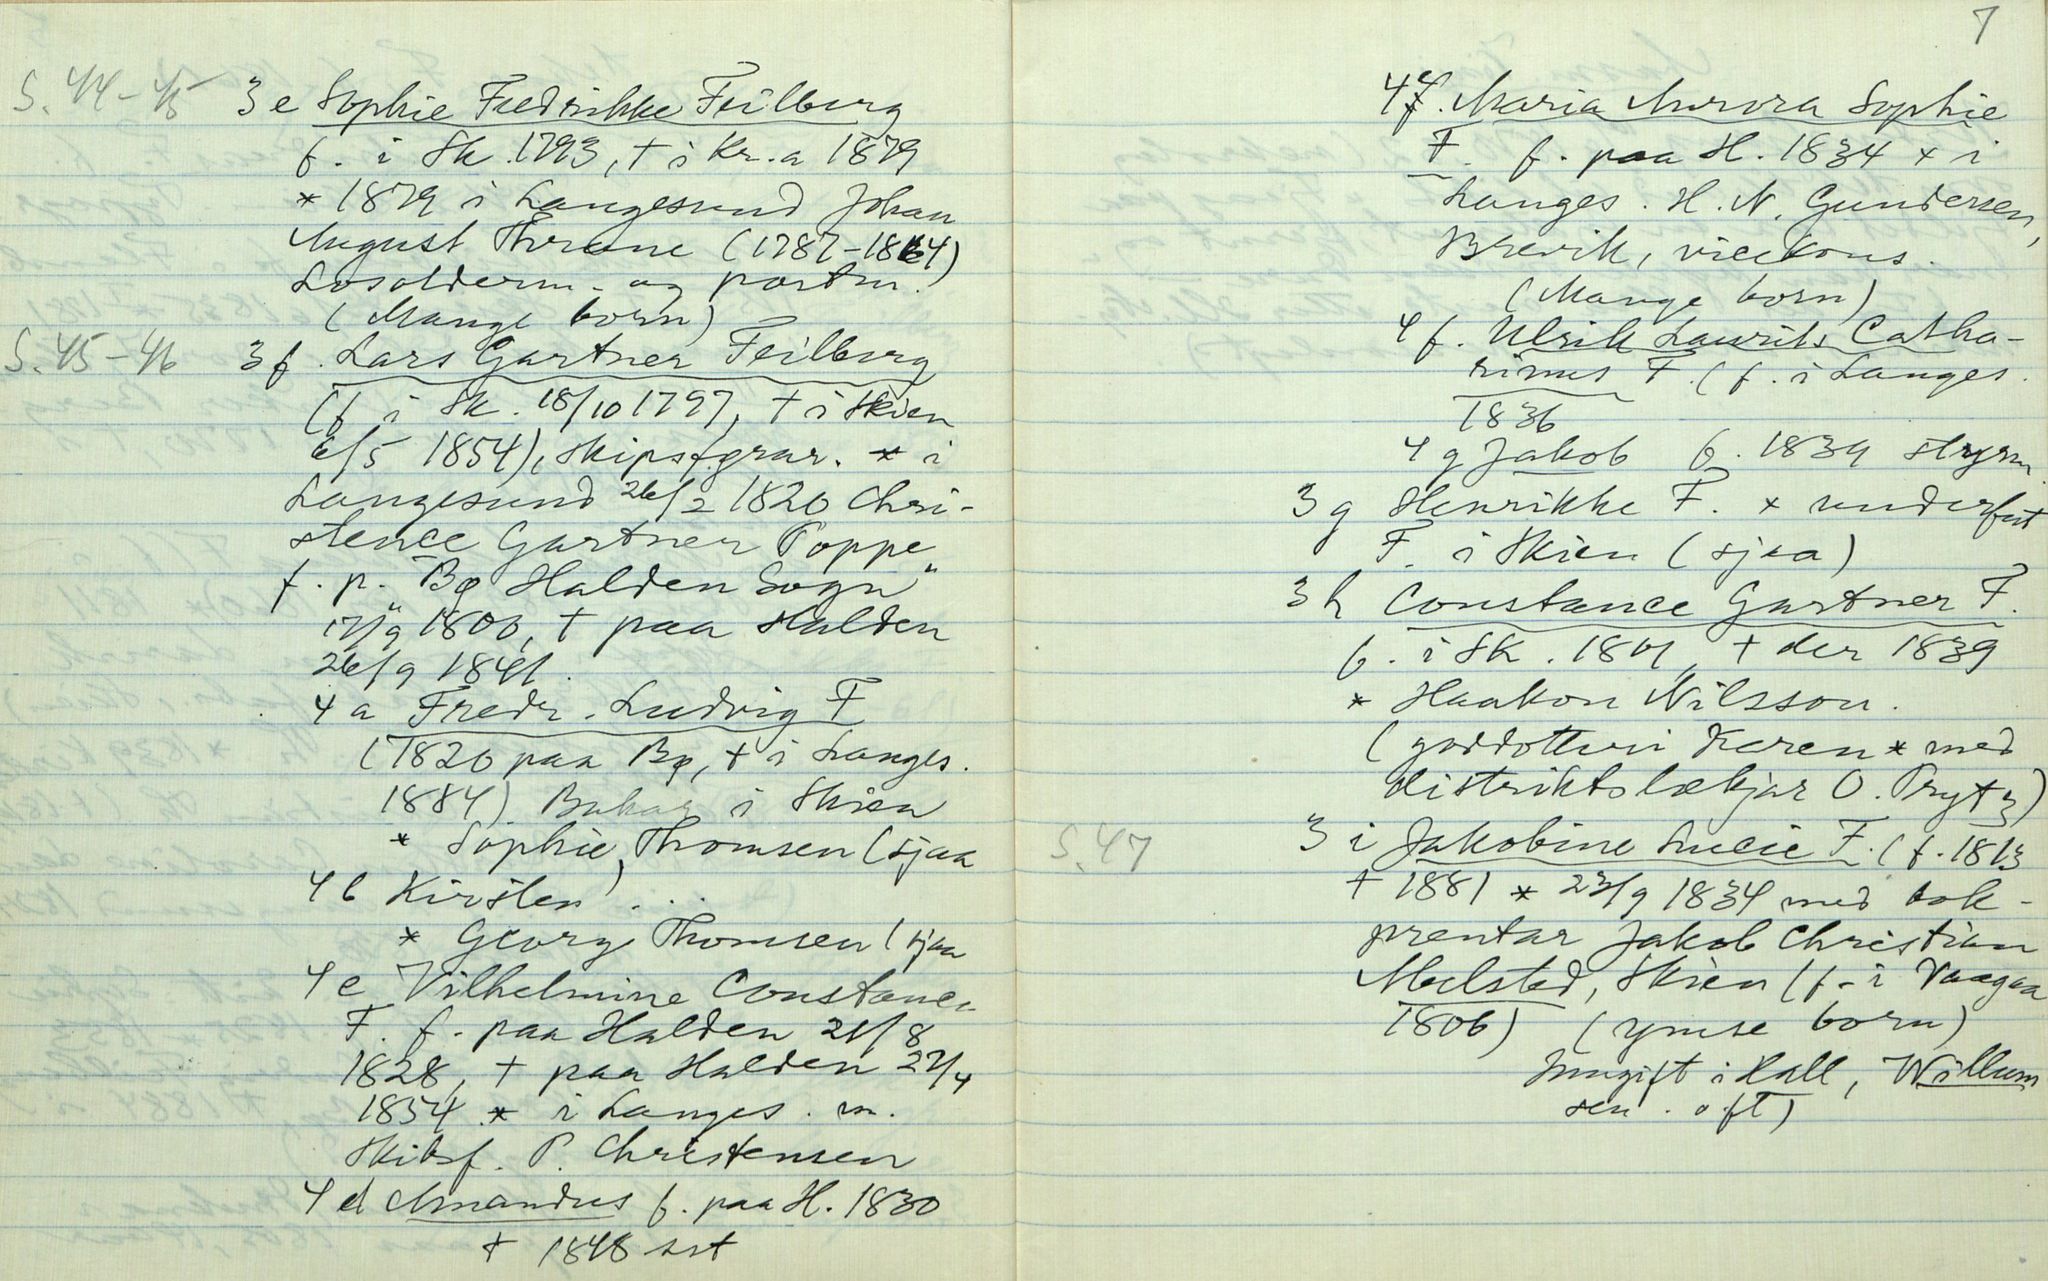 S. 44-45 3 e Sophie Fredrikke Feilberg
f. i Sk. 1793, † i Kr.a 1879
* 1879 i Langesund Johan
August Thrane (1787-1864)
Losolderm. og postm.
(Mange born)
S. 45-46 3 f. Lars Gartner Feilberg
(f. i Sk. 18/10 1797, † i Skien
6/5 1854), skipsførar. * i
Langesund 26/2 1820 Chri-
stence Gartner Poppe
f. p. "Bø Halden Sogn"
17/9 1800, † paa Halden
26/9 1841.
4 a Fredr. Ludvig F
(1820 paa Bø, † i Langes.
1884). Bakar i Skien
* Sophie Thomsen (sjaa
4 b Kirsten ...
* Georg Thomsen (sjaa
4 c Vilhelmine Constance
F. f. paa Halden 21/8
1828, † paa Halden 27/4
1854 * i Langes. m.
Skibsf. P. Christensen
4 d Amandus f. paa H. 1830
† 1848
7
4 e. Maria Aurora Sophie
F. f. paa H. 1834 * i
Langes. H. N. Gundersen,
Brevik, vicekons.
(Mange born)
4 f. Ulrik Laurits Catha-
rinus F. (f. i Langes.
1836
4 g Jakob f. 1839 styrm.
3 g Henrikke F. * underfut
F. i Skien (sjaa)
3 h Constance Gartner F.
f. i Sk. 1801, † der 1839
* Haakon Nilsson.
(goddotteri Karen * med
distriktslækjar O. Prytz)
S. 47 3 i Jakobine Lucie F. (f. 1813
† 1881 * 23/9 1834 med bok-
prentar Jakob Christian
Melsted, Skien (f. i Vaagaa
1806) (ymse born)
Inngift i Kall, Willum
sen. o.fl)